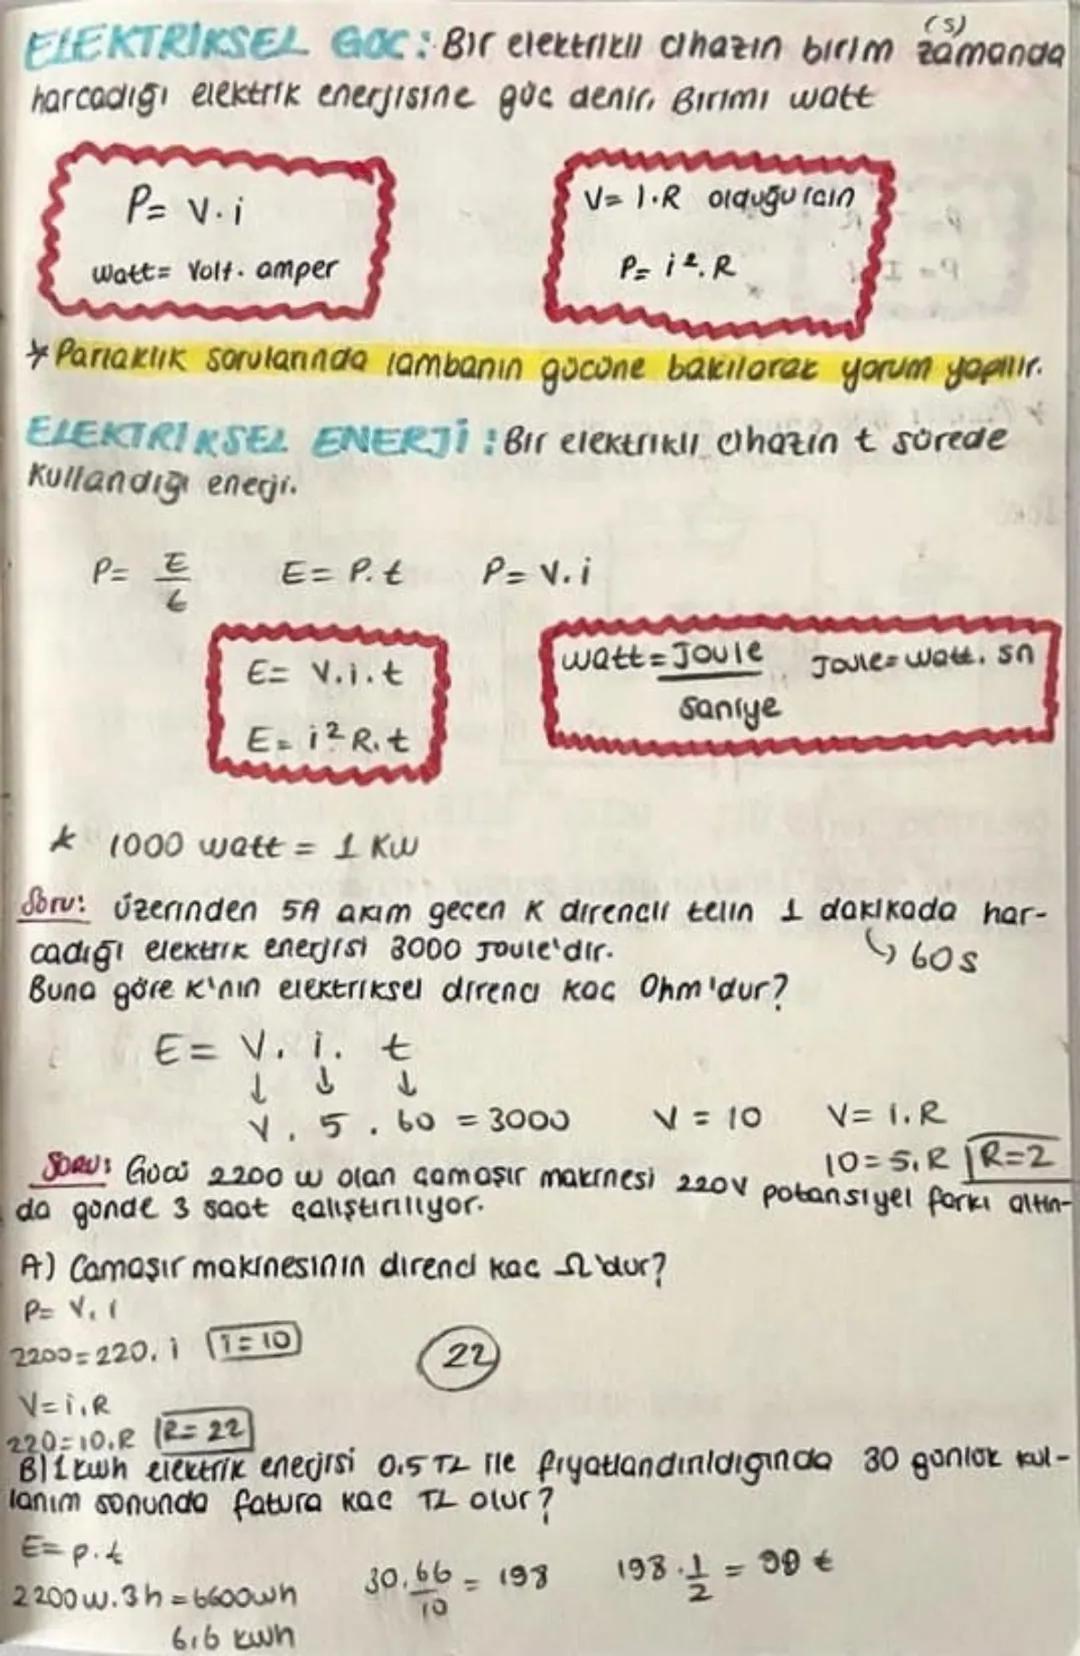 ELEKTRİKSEL GÜÇ: Bir elektrikli cihazın birim zamanda (s)
harcadığı elektrik enerjisine güç denir. Birimi watt
P= V.i
watt= Volt. amper
V= I.R olduğu için
P= i².R
* Parlaklık sorularında lambanın gücüne bakılarak yorum yapılır.
ELEKTRİKSEL ENERJİ: Bir elektrikli cihazın t sürede
kullandığı enerji.
P= E/t E= P.t P= V.i
E= V.i.t
E= i²R.t
watt= Joule/saniye Joule= watt. sn
* 1000 watt = 1 KW
Soru: Üzerinden 5A akım geçen K dirençli telin 1 dakikada har-
cadığı elektrik enerjisi 3000 Joule'dir. ↳ 60s
Buna göre K'nın elektriksel direnci kaç Ohm'dur?
E= V. i. t
↓ ↓ ↓
V. 5. 60 = 3000 V = 10 V= i.R
10=5.R R=2
Soru: Gücü 2200 W olan çamaşır makinesi 220V potansiyel farkı altın-
da günde 3 saat çalıştırılıyor.
A) Çamaşır makinesinin direnci kaç Ω'dur?
P= V.i
2200=220.i i=10
22
V=i.R
220=10.R R=22
B) 1 kwh elektrik enerjisi 0.5 TL ile fiyatlandırıldığında 30 günlük kul-
lanım sonunda fatura kaç TL olur?
E= p.t
2200w.3h=6600wh 30.66/10 = 198 198.1/2 = 99 ₺
6,6 kwh